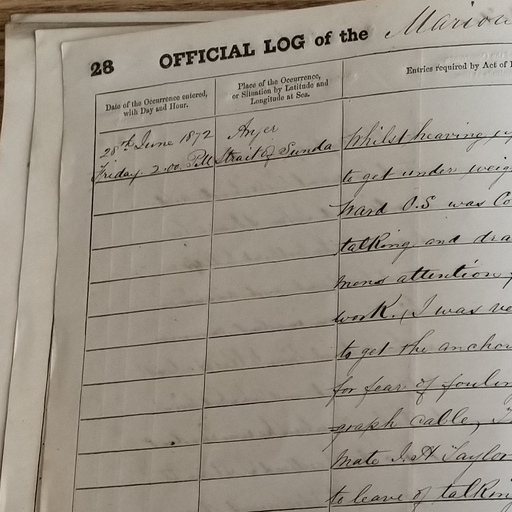 28 OFFICIAL LOG of the Mario
Date of the Occurrence entered, with Day and Hour.
Place of the Occurrence, or Situation by Latitude and Longitude at Sea.
Entries required by Act of
28th June 1872
Friday 2.00 PM
Anjer
Strait of Sunda
Whilst heaving
to get under weig
Ward O.S was Co
talking and dra
mens attention
work. I was
to get the anchor
for fear of foulin
graph cable,
Mate J. H Taylor
to leave of talkin